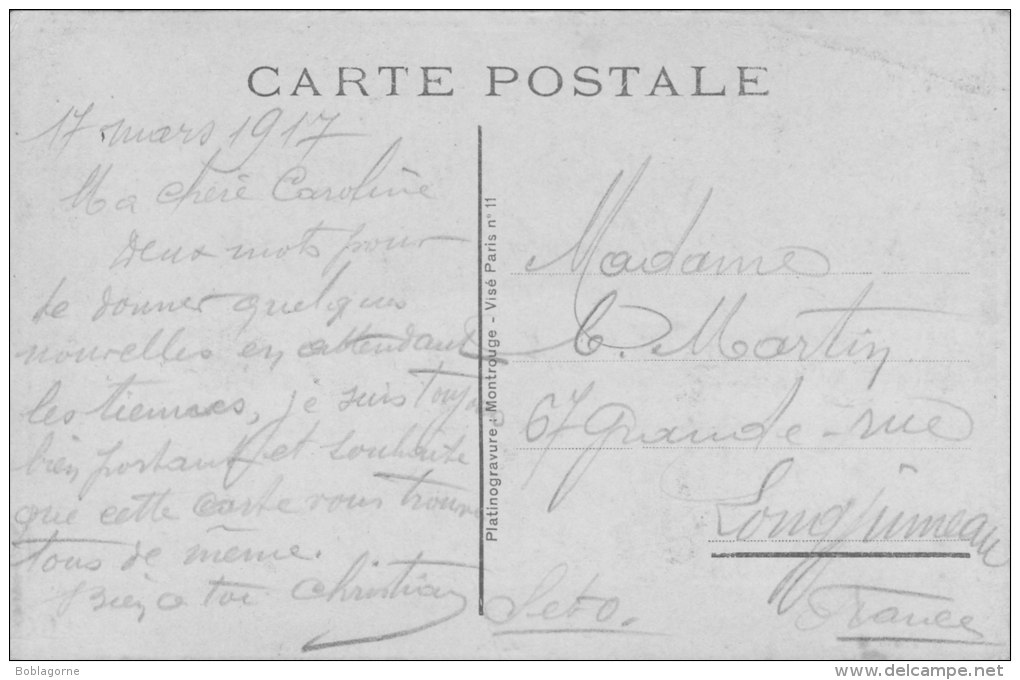 CARTE POSTALE
17 mars 1917
Ma chère Caroline
Deux mots pour
te donner quelques
nouvelles en attendant
les tiennes, je suis toujours
bien portant et souhaite
que cette carte vous trouve
tous de même.
Bien a toi Christian
Platinogravure : Montrouge - Visé Paris n° 11
Madame
C. Martin
67 Grande-rue
Longjumeau
Set-O.
France
Boblagorne
www.delcampe.net